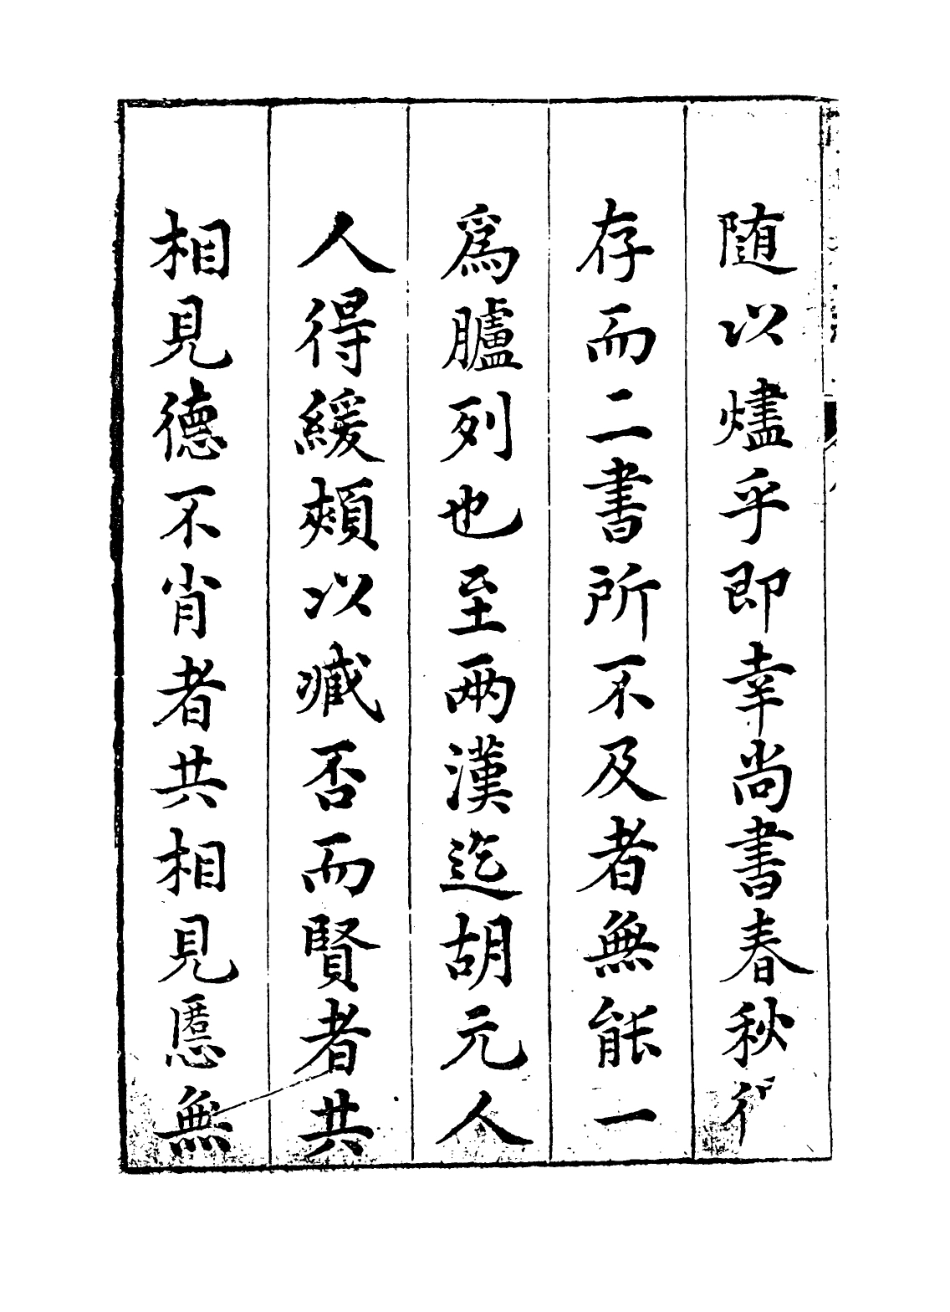 随以燼乎即幸尚書春秋
存而二書所不及者無能一
爲臚列也至兩漢迄胡元人
人得緩頰以臧否而賢者共
相見德不肖者共相見慝無